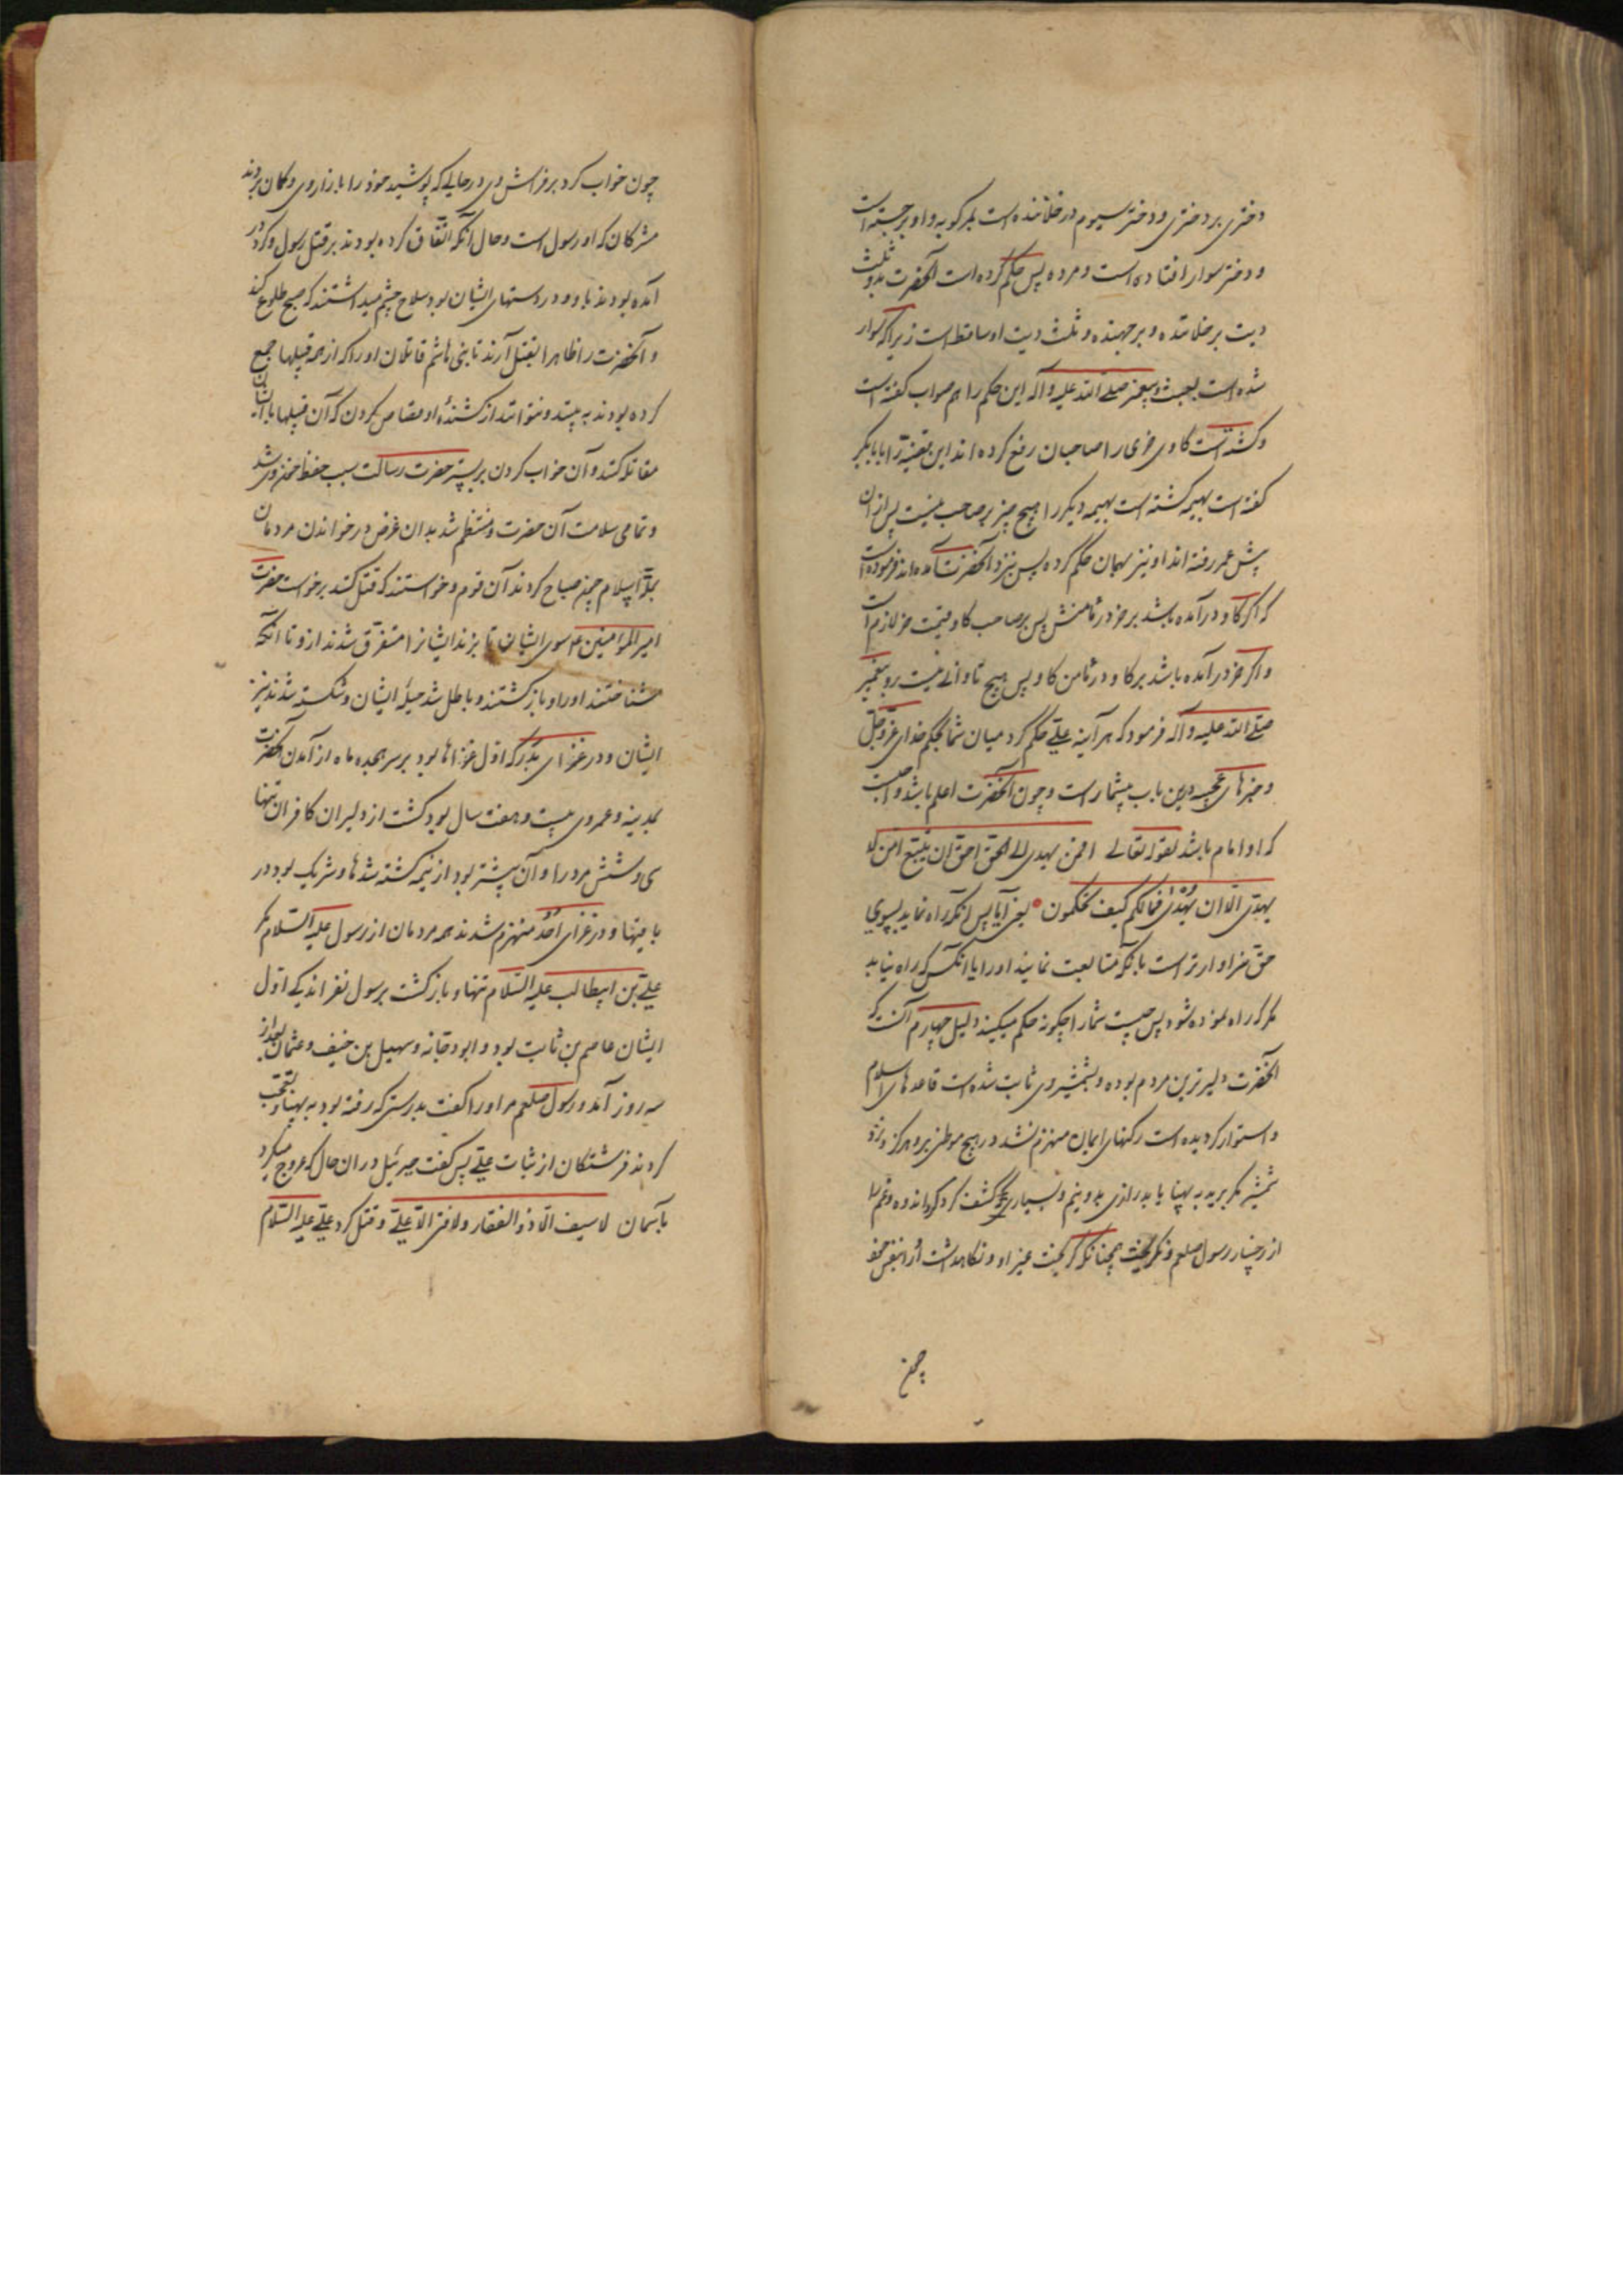 دختری بر دختری و دختر سیوم در خلانده است مرکوبه و او برجسته است
و دختر سوار افتاده است و مرده پس حکم کرده است آنحضرت بدو ثلث
دیت بر خلاننده و برجهنده و ثلث دیت او ساقط است زیرا که سوار
شده است بعبث و پیغمبر صلی الله علیه وآله این حکم را هم صواب گفته است
و کشته است کاوی خری را صاحبان رفع کرده اند این قضیه را بابابکر
گفته است بهیمه کشته است بهیمه دیگر را هیچ چیز بر صاحب نیست پس از ان
پیش عمر رفته اند او نیز بهمان حکم کرده پس نزد آنحضرت آمده اند فرموده است
که اگر کاو درآمده باشد بر خر در مامنش پس بر صاحب کاو قیمت خر لازم است
و اگر خر درآمده باشد بر کاو در مامن کاو پس هیچ تاوانی نیست رو پیغمبر
صلی الله علیه وآله فرمود که هرآینه علی حکم کرد میان شما بحکم خدای عز وجل
و خبرهای عجیبه درین باب بیشمار است و چون آنحضرت اعلم باشد واجبست
که او امام باشد لقوله تعالی افمن یهدی الی الحق احق ان یتبع امن لا
یهدی الا ان یهدی فمالکم کیف تحکمون یعنی آیا پس آنکه راه نماید بسوی
حق سزاوارتر است بآنکه متابعت نمایند او را یا آنکس که راه نیابد
مگر که راه نموده شود پس چیست شما را چگونه حکم میکنید دلیل چهارم آنست که
آنحضرت دلیرترین مردم بوده و بشمشیر وی ثابت شده است قاعدهای اسلام
و استوار گردیده است رکنهای ایمان منهزم نشد در هیچ موطنی و هرگز نزد
شمشیر مگر برید به پهنا یا بدرازی بدو نیم و بسیاری کشف کرد اندوه و غم را
از رخسار رسول صلعم و نگریخت چنانکه گریخت غیر او و نگاهداشت او را بنفس خود
چون
چون خواب کرد بر فراش وی در حالی که پوشید خود را بازار وی و گمان بردند
مشرکان که او رسول است و حال آنکه اتفاق کرده بودند بر قتل رسول و گرد
آمده بودند باو و در دستهای ایشان بود سلاح چشم میداشتند که صبح طلوع کند
و آنحضرت را ظاهرا بقتل آرند تا بنی هاشم قاتلان او را که از همه قبیلها جمع
کرده بودند به بینند و نتوانند از کشندهٔ او قصاص کردن که آن قبیلها با ایشان
مقاتله کنند و آن خواب کردن بر بستر حضرت رسالت سبب حفظ خون وی شد
و تمامی سلامت آن حضرت و منتظم شد بدان غرض در خواندن مردمان
بملة اسلام چون صباح کردند آن قوم و خواستند که قتل کنند برخواست حضرت
امیر المؤمنین ع سوی ایشان تا بزند ایشانرا متفرق شدند ازو تا آنکه
شناختند او را و بازگشتند و باطل شد حیلهٔ ایشان و شکسته شد تدبیر
ایشان و در غزای بدر که اول غزاها بود بر سر هجده ماه از آمدن آنحضرت
بمدینه و عمر وی بیست و هفت سال بود کشت از دلیران کافران تنها
سی و شش مرد را و آن بیشتر بود از نیمه کشته شدها و شریک بود در
باقیها و در غزای احد منهزم شدند همه مردمان از رسول علیه السلام مگر
علی بن ابیطالب علیه السلام تنها و بازگشت برسول نفر اندکی اول
ایشان عاصم بن ثابت بود و ابودجانه و سهیل بن حنیف و عثمان بعد از
سه روز آمد و رسول صلعم مر او را گفت بدرستی که رفته بود به پهنا و تعجب
کردند فرشتگان از ثبات علی پس گفت جبرئیل در ان حال که عروج میکرد
بآسمان لا سیف الا ذو الفقار ولا فتی الا علی و قتل کرد علی علیه السلام